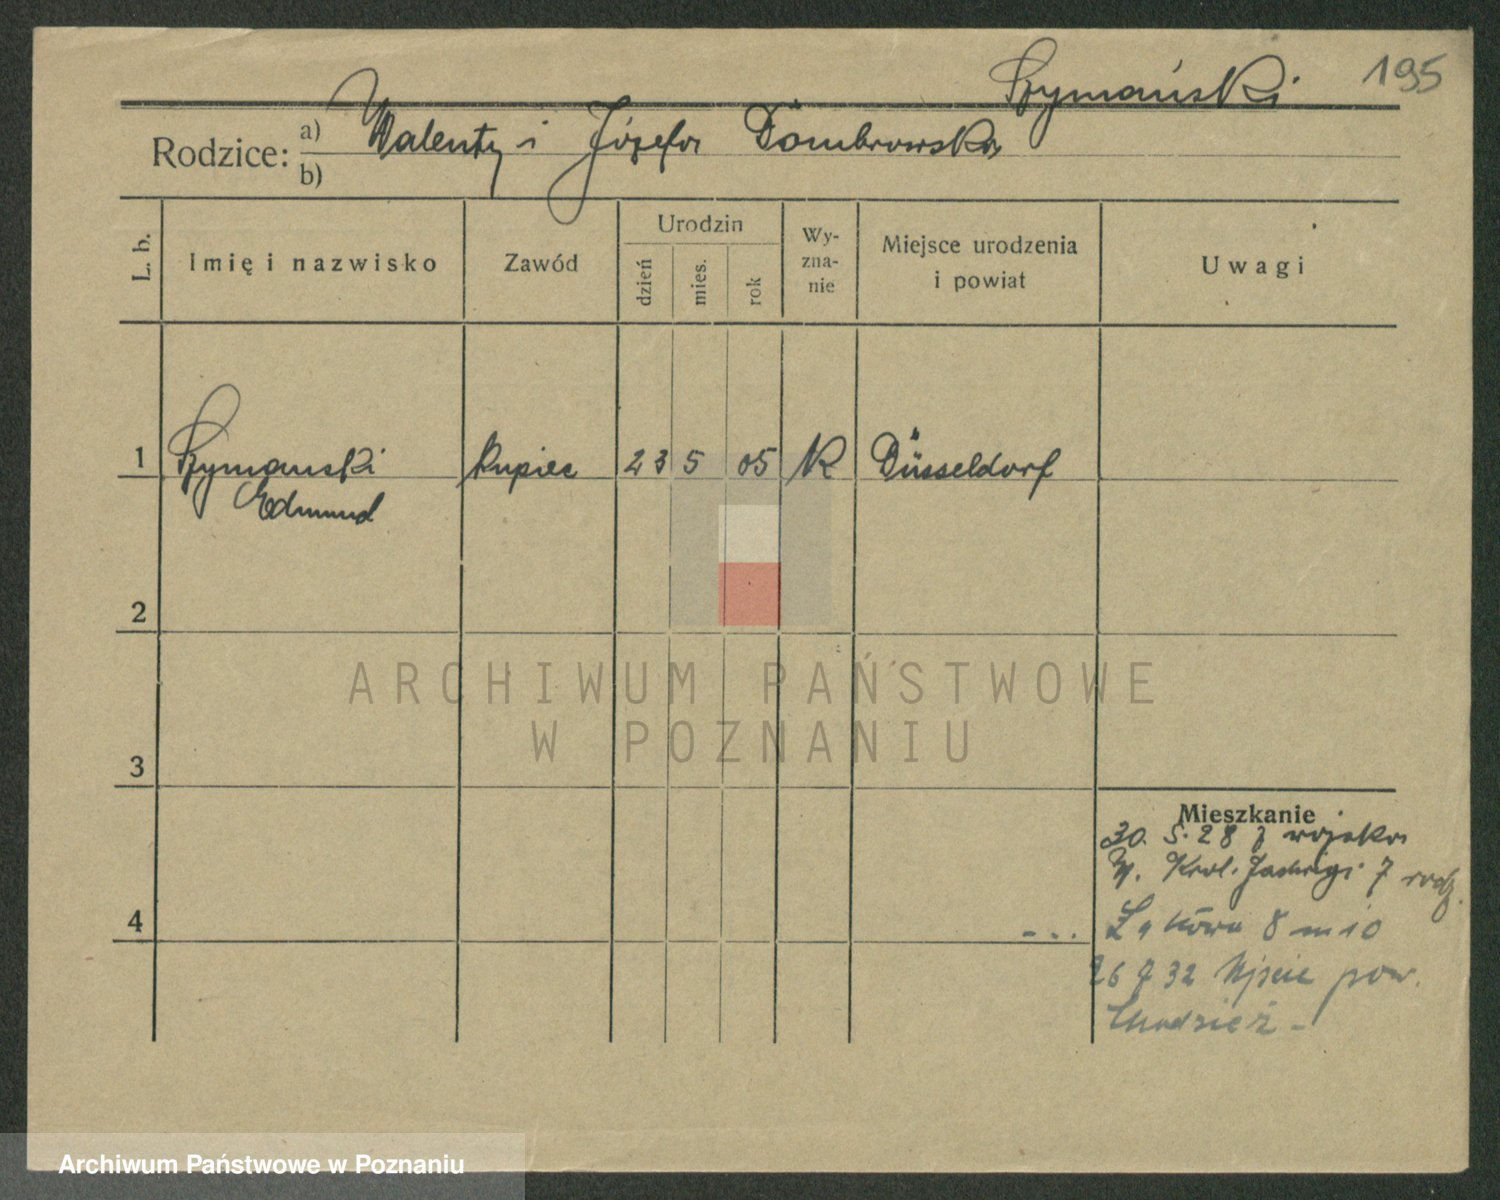 Szymański 195
Rodzice: a) Walenty i Józefa Dombrowska
b)
L. b.
Imię i nazwisko
Zawód
Urodzin
dzień
mies.
rok
Wy-
zna-
nie
Miejsce urodzenia
i powiat
Uwagi
1 Szymanski kupiec 23 5 05 K Düsseldorf
Edmund
2
ARCHIWUM PAŃSTWOWE
W POZNANIU
3
Mieszkanie
30. 5. 28 z wojska
Krol. Jadwigi 7 rodz.
4
--. Łąkowa 8 m 10
26 7 32 Ujście pow.
Chodzież -
Archiwum Państwowe w Poznaniu